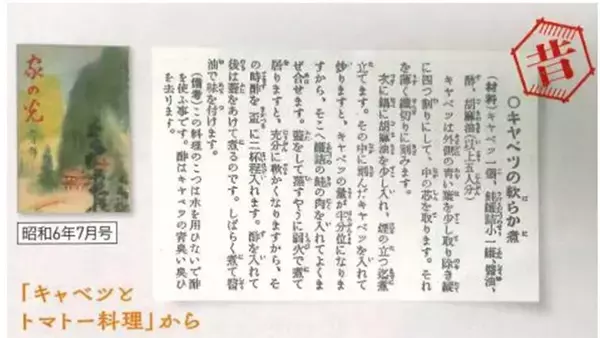 昔
○キャベツの軟らか煮
(材料)キャベツ一個、鮭罐詰小一罐、醬油、
酢、胡麻油(以上五人分)
キャベツは外側の青い葉を少し取り除き縦
に四つ割りにして、中の芯を取ります。それ
を薄く纖切りに刻みます。
次に鍋に胡麻油を少し入れ、煙の立つ迄煮
立てます。その中に刻んだキャベツを入れて
炒りますと、キャベツの量が半分位になりま
すから、そこへ罐詰の鮭の肉を入れてよくま
ぜ合せます。蓋をして蒸すやうに弱火で煮て
居りますと、充分に軟かくなりますから、そ
の時酢を盃に二杯程入れます。酢を入れて
後は蓋をあけて煮るのです。しばらく煮て醬
油で味を付けます。
(備考)この料理のこつは水を用ひないで酢
を使ふ事です。酢はキャベツの青臭い臭ひ
を去ります。
家の光
昭和6年7月号
「キャベツと
トマトー料理」から